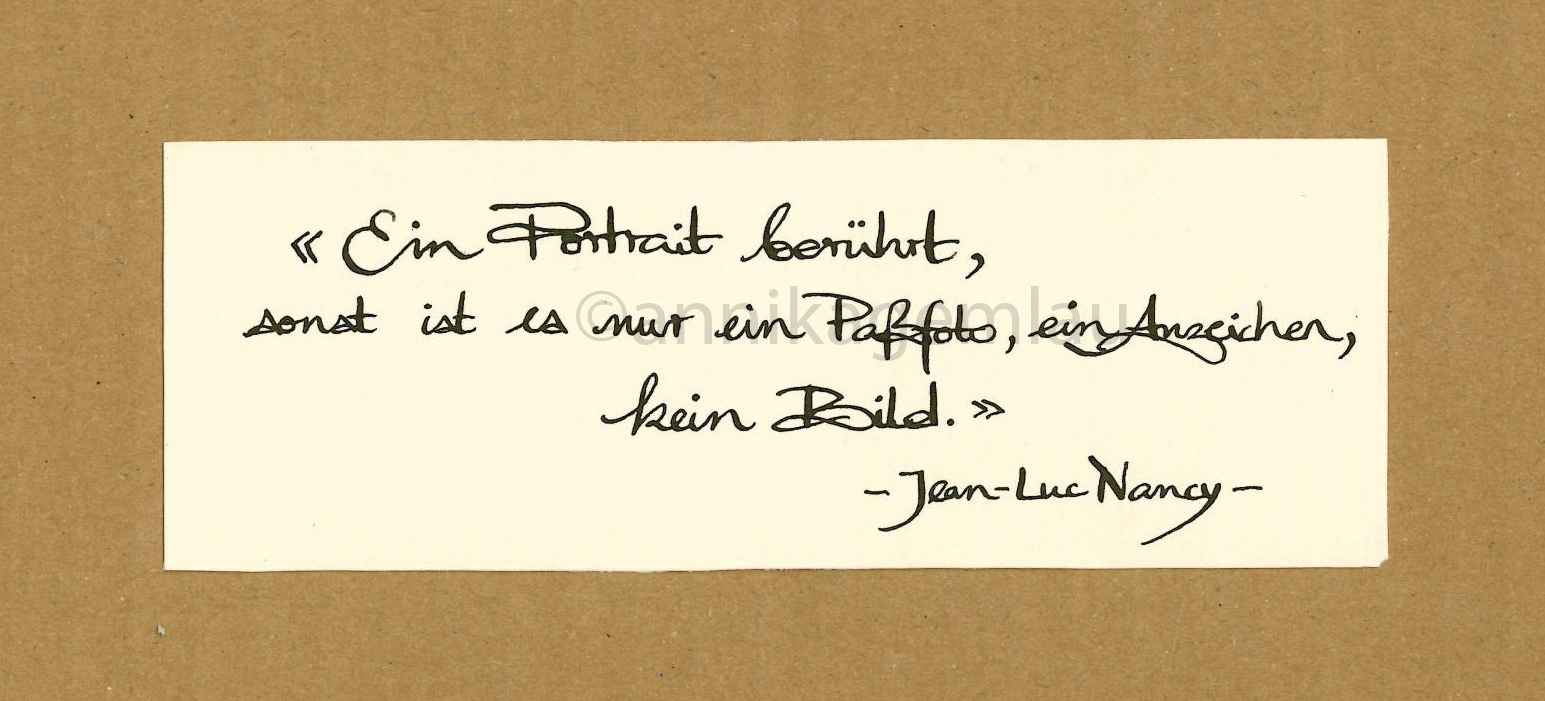 « Ein Portrait berührt,
sonst ist es nur ein Paßfoto, ein Anzeichen,
kein Bild. »
- Jean-Luc Nancy -
©annikagemlau